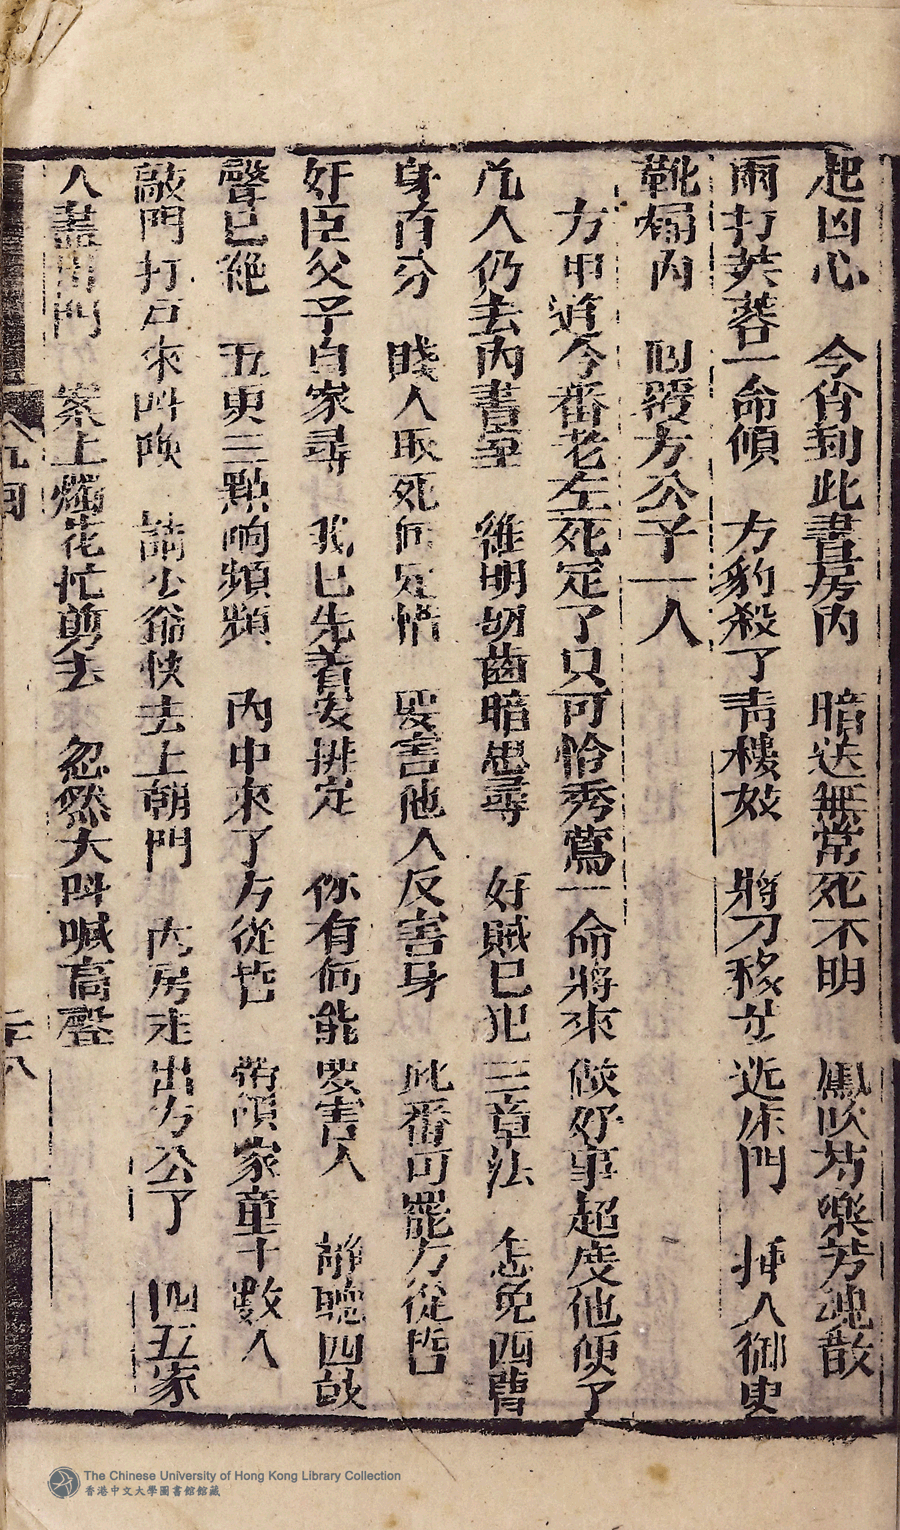 起凶心　今宵到此書房內　暗送無常死不明　鳳吹芍藥芳魂散
雨打芙蓉一命傾　方豹殺了青樓妓　將刀移步近床門　揷入御史
靴桶內　回覆方公子一人
方甲道今番老左死定了只可恰秀鶯一命將來做好事超度他便了
凡人仍去內書室　維明切齒暗思尋　奸賊已犯三章法　怎免西曹
身首分　賤人取死何足惜　要害他人反害身　此番可罷方從哲
奸臣父子自家尋　我已先着安排定　你有何能要害人　靜聽四鼓
聲已絕　五更三點响頻頻　內中來了方從哲　帶領家童十數人
敲門打戶來呌喚　請少爺快去上朝門　內房走出方公了　四五家
人盡開門　案上燭花忙剪去　忽然大呌喊高聲
八九回
二十八
The Chinese University of Hong Kong Library Collection
香港中文大學圖書館館藏